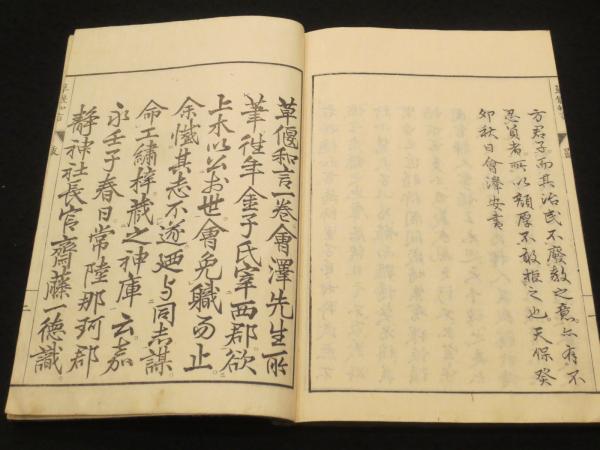 方君子而其治民不廢教之意亦有不
忍負者所以顏厚不敢拒之也天保癸
卯秋日會澤安書
草偃和言一卷會澤先生所
筆往年金子氏宰西郡欲
上木以公於世會免職而止
余憾其志不遂廼与同志謀
命工繡梓藏之神庫云嘉
永壬子春日常陸那珂郡
靜神社長官齋藤一德識